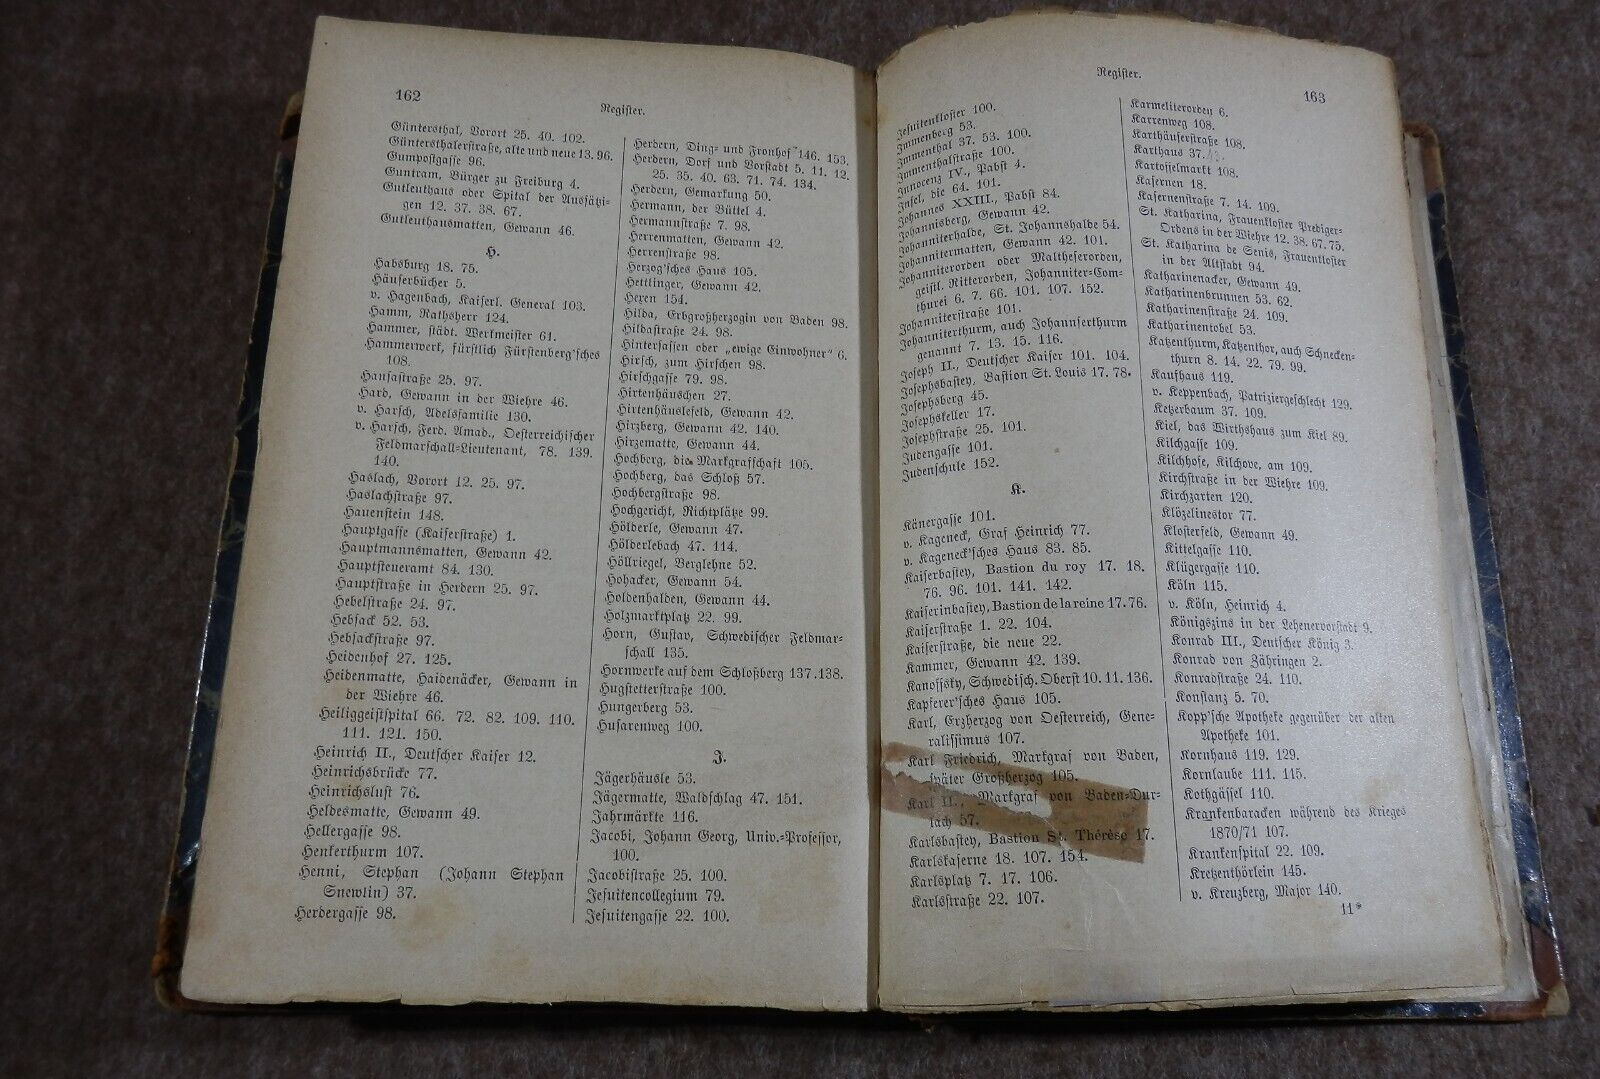 162
Register.
Güntersthal, Vorort 25. 40. 102.
Günterstalerstraße, alte und neue 13. 96.
Gumpostgasse 96.
Guntram, Bürger zu Freiburg 4.
Gutleuthaus oder Spital der Aussätzi-
gen 12. 37. 38. 67.
Gutleuthausmatten, Gewann 46.
H.
Habsburg 18. 75.
Häuserbücher 5.
v. Hagenbach, Kaiserl. General 103.
Hamm, Rathsherr 124.
Hammer, städt. Werkmeister 61.
Hammerwerk, fürstlich Fürstenberg'sches
108.
Hansastraße 25. 97.
Hard, Gewann in der Wiehre 46.
v. Harsch, Adelsfamilie 130.
v. Harsch, Ferd. Amad., Oesterreichischer
Feldmarschall-Lieutenant, 78. 139.
140.
Haslach, Vorort 12. 25. 97.
Haslachstraße 97.
Hauenstein 148.
Hauptgasse (Kaiserstraße) 1.
Hauptmannsmatten, Gewann 42.
Hauptsteueramt 84. 130.
Hauptstraße in Herdern 25. 97.
Hebelstraße 24. 97.
Hebsack 52. 53.
Hebsackstraße 97.
Heidenhof 27. 125.
Heidenmatte, Haidenäcker, Gewann in
der Wiehre 46.
Heiliggeistspital 66. 72. 82. 109. 110.
111. 121. 150.
Heinrich II., Deutscher Kaiser 12.
Heinrichsbrücke 77.
Heinrichslust 76.
Heldesmatte, Gewann 49.
Hellergasse 98.
Henkerthurm 107.
Henni, Stephan (Johann Stephan
Snewlin) 37.
Herdergasse 98.
Herdern, Ding- und Fronhof 146. 153.
Herdern, Dorf und Vorstadt 5. 11. 12.
25. 35. 40. 63. 71. 74. 134.
Herdern, Gemarkung 50.
Hermann, der Büttel 4.
Hermannstraße 7. 98.
Herrenmatten, Gewann 42.
Herrenstraße 98.
Herzog'sches Haus 105.
Hettlinger, Gewann 42.
Hexen 154.
Hilda, Erbgroßherzogin von Baden 98.
Hildastraße 24. 98.
Hintersassen oder „ewige Einwohner“ 6.
Hirsch, zum Hirschen 98.
Hirschgasse 79. 98.
Hirtenhäuschen 27.
Hirtenhäuslefeld, Gewann 42.
Hirzberg, Gewann 42. 140.
Hirzematte, Gewann 44.
Hochberg, die Markgrafschaft 105.
Hochberg, das Schloß 57.
Hochbergstraße 98.
Hochgericht, Richtplätze 99.
Hölderle, Gewann 47.
Hölderlebach 47. 114.
Höllriegel, Berglehne 52.
Hohacker, Gewann 54.
Holdenhalden, Gewann 44.
Holzmarktplatz 22. 99.
Horn, Gustav, Schwedischer Feldmar-
schall 135.
Hornwerke auf dem Schloßberg 137. 138.
Hugstetterstraße 100.
Hungerberg 53.
Husarenweg 100.
J.
Jägerhäusle 53.
Jägermatte, Waldschlag 47. 151.
Jahrmärkte 116.
Jacobi, Johann Georg, Univ.-Professor,
100.
Jacobistraße 25. 100.
Jesuitencollegium 79.
Jesuitengasse 22. 100.
Register.
163
Jesuitenkloster 100.
Immenberg 53.
Immenthal 37. 53. 100.
Immenthalstraße 100.
Innocenz IV., Pabst 4.
Insel, die 64. 101.
Johannes XXIII., Pabst 84.
Johannisberg, Gewann 42.
Johanniterhalde, St. Johannshalde 54.
Johannitermatten, Gewann 42. 101.
Johanniterorden oder Maltheserorden,
geistl. Ritterorden, Johanniter-Com-
thurei 6. 7. 66. 101. 107. 152.
Johanniterstraße 101.
Johanniterthurm, auch Johannserthurm
genannt 7. 13. 15. 116.
Joseph II., Deutscher Kaiser 101. 104.
Josephsbastey, Bastion St. Louis 17. 78.
Josephsberg 45.
Josephskeller 17.
Josephstraße 25. 101.
Judengasse 101.
Judenschule 152.
K.
Känergasse 101.
v. Kageneck, Graf Heinrich 77.
v. Kageneck'sches Haus 83. 85.
Kaiserbastey, Bastion du roy 17. 18.
76. 96. 101. 141. 142.
Kaiserinbastey, Bastion de la reine 17. 76.
Kaiserstraße 1. 22. 104.
Kaiserstraße, die neue 22.
Kammer, Gewann 42. 139.
Kanoffsky, Schwedisch. Oberst 10. 11. 136.
Kapferer'sches Haus 105.
Karl, Erzherzog von Oesterreich, Gene-
ralissimus 107.
Karl Friedrich, Markgraf von Baden,
später Großherzog 105.
Karl II., Markgraf von Baden-Dur-
lach 57.
Karlsbastey, Bastion St. Thérèse 17.
Karlskaserne 18. 107. 154.
Karlsplatz 7. 17. 106.
Karlsstraße 22. 107.
Karmeliterorden 6.
Karrenweg 108.
Karthäuserstraße 108.
Karthaus 37.
Kartoffelmarkt 108.
Kasernen 18.
Kasernenstraße 7. 14. 109.
St. Katharina, Frauenkloster Prediger-
Ordens in der Wiehre 12. 38. 67. 75.
St. Katharina de Senis, Frauenkloster
in der Altstadt 94.
Katharinenacker, Gewann 49.
Katharinenbrunnen 53. 62.
Katharinenstraße 24. 109.
Katharinentobel 53.
Katzenthurm, Katzenthor, auch Schnecken-
thurn 8. 14. 22. 79. 99.
Kaufhaus 119.
v. Keppenbach, Patriziergeschlecht 129.
Ketzerbaum 37. 109.
Kiel, das Wirthshaus zum Kiel 89.
Kilchgasse 109.
Kilchhofe, Kilchove, am 109.
Kirchstraße in der Wiehre 109.
Kirchzarten 120.
Klözelinestor 77.
Klosterfeld, Gewann 49.
Kittelgasse 110.
Klügergasse 110.
Köln 115.
v. Köln, Heinrich 4.
Königszins in der Lehenervorstadt 9.
Konrad III., Deutscher König 3.
Konrad von Zähringen 2.
Konradstraße 24. 110.
Konstanz 5. 70.
Kopp'sche Apotheke gegenüber der alten
Apotheke 101.
Kornhaus 119. 129.
Kornlaube 111. 115.
Kothgässel 110.
Krankenbaracken während des Krieges
1870/71 107.
Krankenspital 22. 109.
Kretzenthörlein 145.
v. Kreuzberg, Major 140.
11*